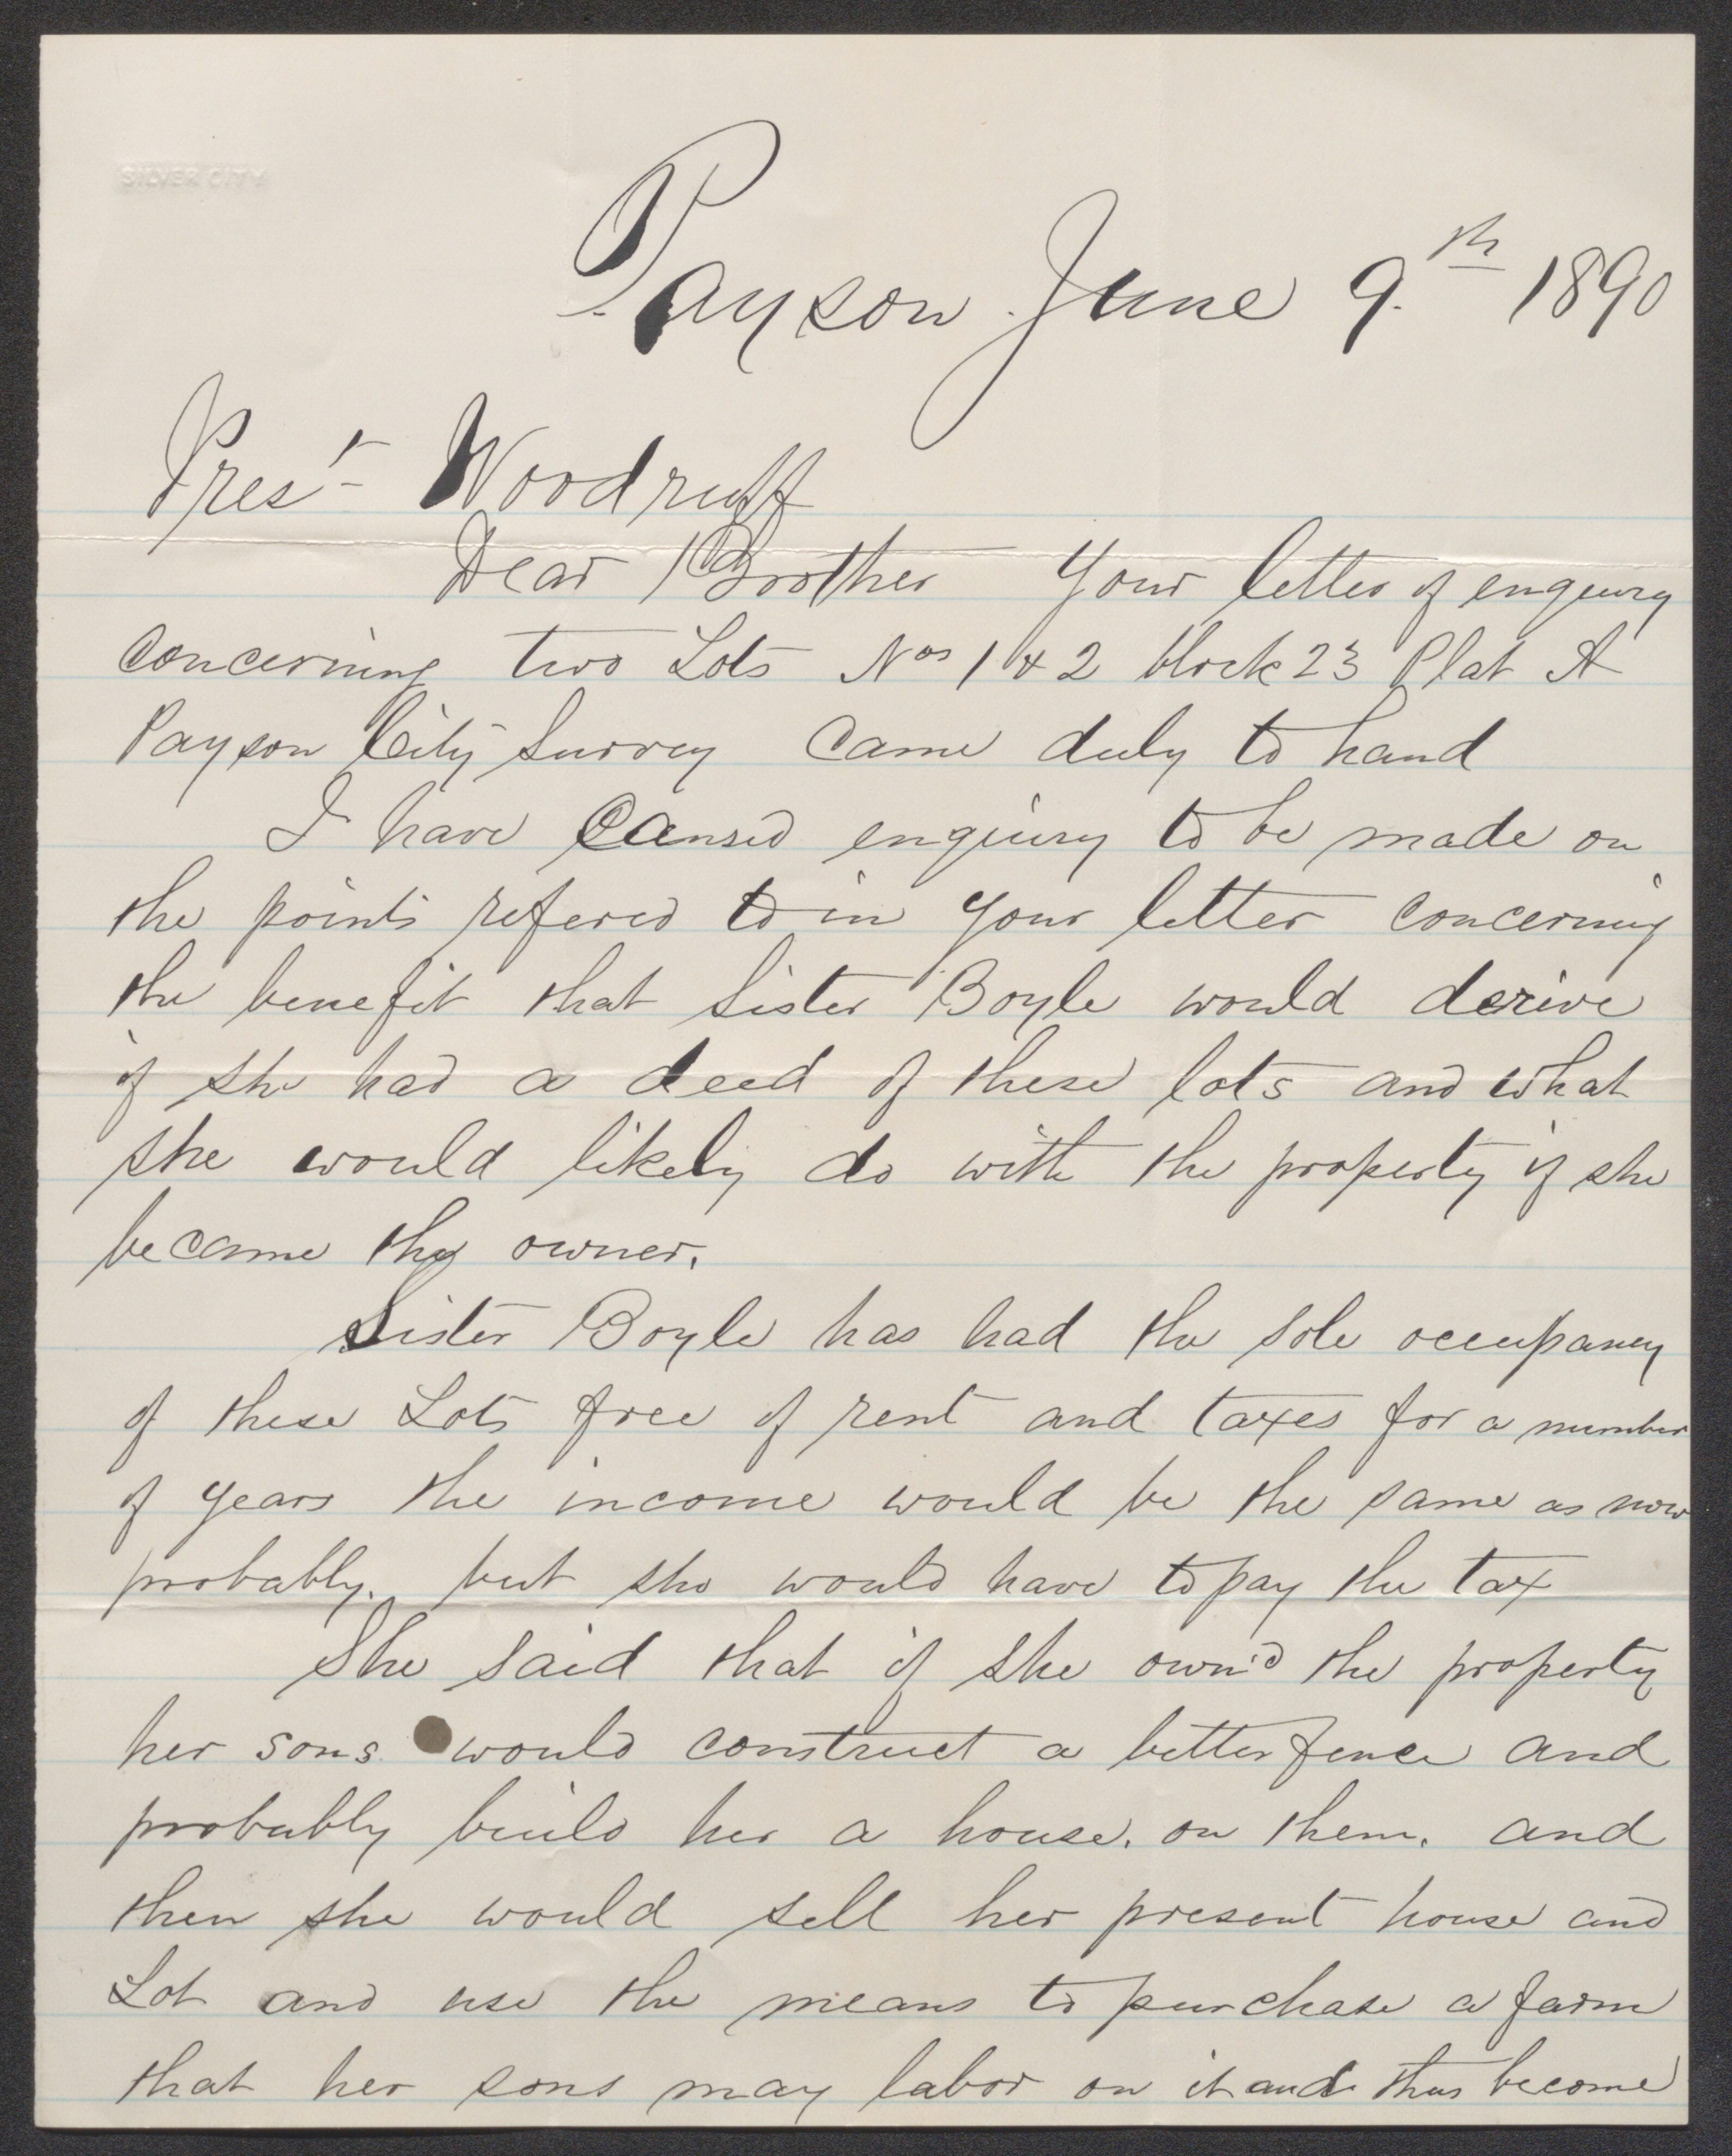 SILVER CITY
Payson June 9.th 1890
Prest Woodruff
Dear Brother Your letter of enquiry
concerning two Lots Nos 1 & 2 block 23 Plat A
Payson City Survey came duly to hand
I have caused enquiry to be made on
the points refered to in your letter concerning
the benefit that Sister Boyle would derive
if she had a deed of these lots and what
she would likely do with the property if she
became the owner.
Sister Boyle has had the sole occupancy
of these Lots free of rent and taxes for a number
of years the income would be the same as now
probably. but she would have to pay the tax
She said that if she own'd the property
her sons would construct a better fence and
probably build her a house. on them. and
then she would sell her present house and
Lot and use the means to purchase a farm
that her sons may labor on it and thus become